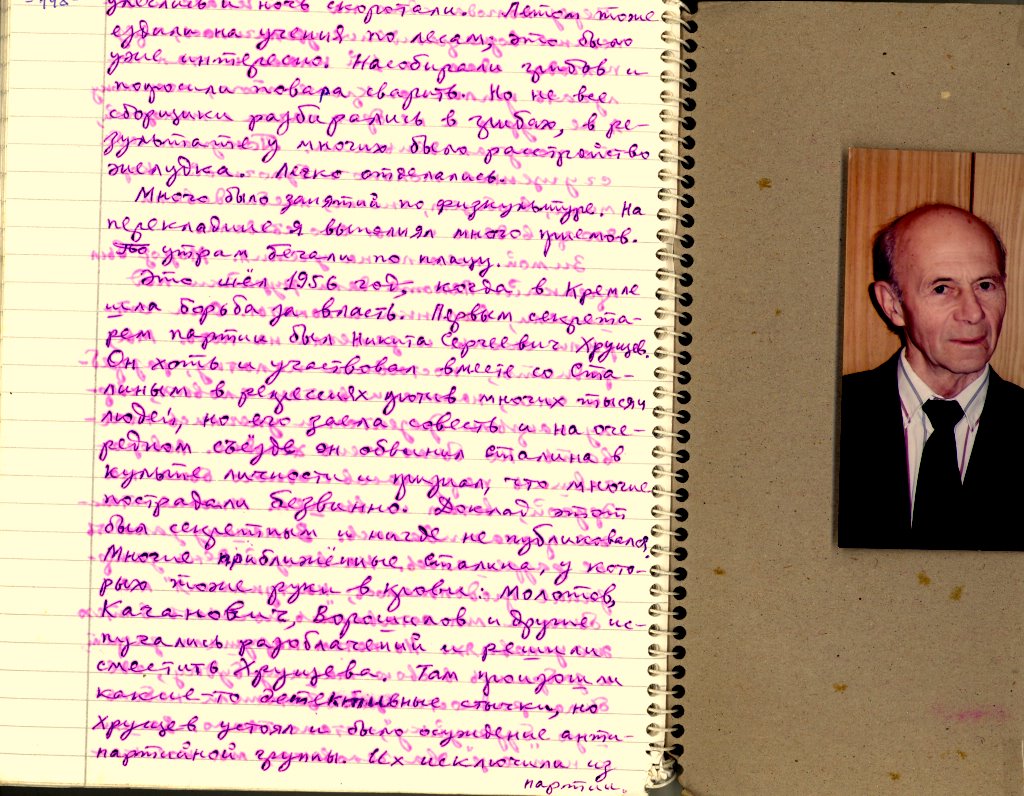 -448-
улеглись и ночь скоротали. Летом тоже
ездили на учения по лесам, это было
уже интересно. Насобирали грибов и
попросили повара сварить. Но не все
сборщики разбирались в грибах, в ре-
зультате у многих было расстройство
желудка. Легко отделались.
Много было занятий по физкультуре. На
перекладине я выполнял много приёмов.
По утрам бегали по плацу.
Это шёл 1956 год, когда в Кремле
шла борьба за власть. Первым секрета-
рем партии был Никита Сергеевич Хрущев.
Он хоть и участвовал вместе со Ста-
линым в репрессиях против многих тысяч
людей, но его заела совесть и на оче-
редном съезде он обвинил Сталина в
культе личности и признал, что многие
пострадали безвинно. Доклад этот
был секретным и нигде не публиковался.
Многие приближённые Сталина, у кото-
рых тоже руки в крови: Молотов,
Каганович, Ворошилов и другие ис-
пугались разоблачений и решили
сместить Хрущева. Там произошли
какие-то детективные стычки, но
Хрущев устоял и было осуждение анти-
партийной группы. Их исключили из
партии.